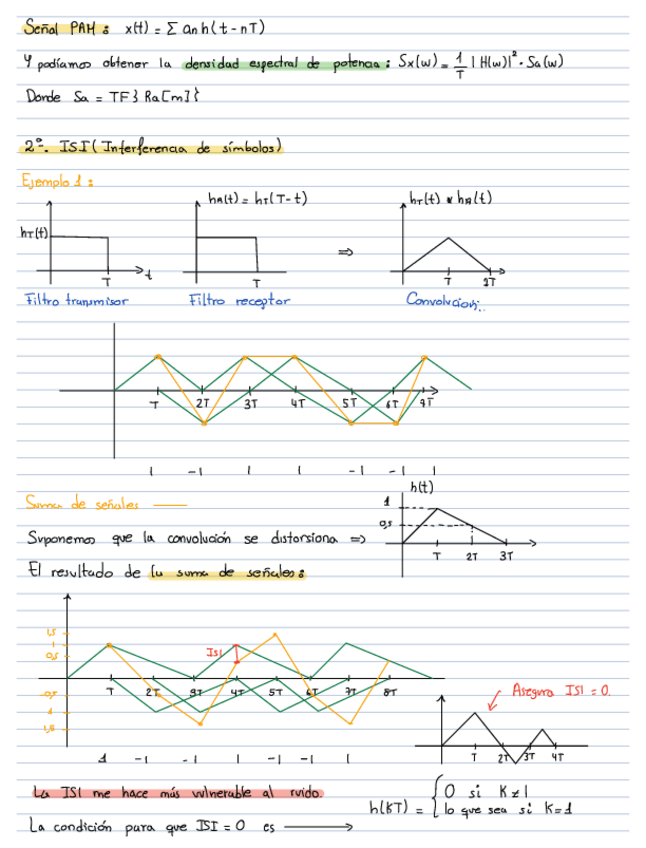 Señal PAM: x(t) = Σ an h(t-nT)
Y podíamos obtener la densidad espectral de potencia: Sx(w) = 1/T |H(w)|² · Sa(w)
Donde Sa = TF{Ra[m]}
2º. ISI (Interferencia de símbolos)
Ejemplo 1:
hT(t) T t
hR(t) = hT(T-t) T
⇒
hT(t) * hR(t) T 2T
Filtro transmisor Filtro receptor Convolución:
T 2T 3T 4T 5T 6T 7T
1 -1 1 1 -1 -1 1
Suma de señales
h(t) 1 0,5 T 2T 3T
Suponemos que la convolución se distorsiona ⇒
El resultado de la suma de señales:
1,5 1 0,5 -0,5 1 1,5
ISI
T 2T 3T 4T 5T 6T 7T 8T
1 -1 -1 1 -1 -1 1
Asegura ISI = 0.
T 2T 3T 4T
La ISI me hace más vulnerable al ruido.
La condición para que ISI = 0 es ⟶
h(KT) = { 0 si K≠1
lo que sea si K=1